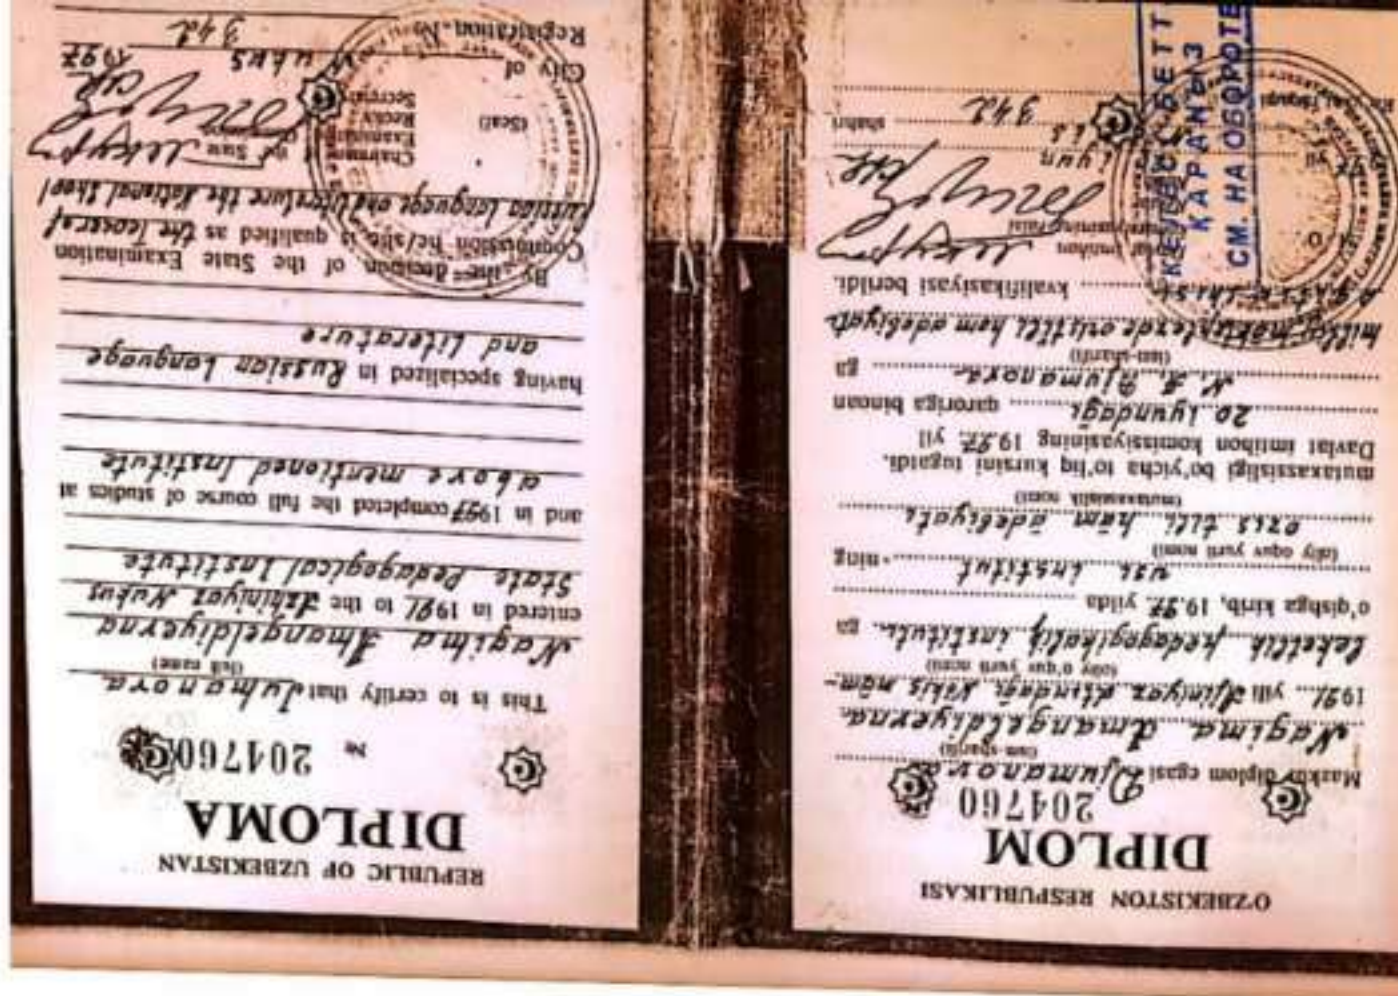 O'ZBEKISTON RESPUBLIKASI
DIPLOM
204760
Mazkur diplom egasi Djumanova
(ism-sharifi)
Nagima Amangeldiyevna
1991 yili Ájiniyaz atındaģı Nókis mám-
(oliy o'quv yurti nomi)
leketlik pedagogikalıq institutı ga
o'qishga kirib, 1997 yilda
usı institut ning
(oliy oquv yurti nomi)
orıs tili hám ádebiyatı
(mutaxassislik nomi)
mutaxassisligi bo'yicha to'liq kursini tugatdi.
Davlat imtihon komissiyasining 1997 yil
20 iyundaģı qaroriga binoan
N. A. Djumanova ga
(ism-sharifi)
milliy mekteplerde orıs tili hem adebiyat
kvalifikasiyasi berildi.
imtihon
iyun
yil
342 shahri
КЕЛЕСИ БЕТТ
КАРАҢЫЗ
СМ. НА ОБОРОТЕ
REPUBLIC OF UZBEKISTAN
DIPLOMA
№ 204760
This is to certify that Jumanova
(full name)
Nagima Amangeldiyevna
entered in 1991 to the Azhiniyaz Nukus
State Pedagogical Institute
and in 1997 completed the full course of studies at
above mentioned Institute
having specialized in Russian Language
and Literature
By the decision of the State Examination
Commission he/she is qualified as the Teacher of
Russian language and Literature the National Shool
Chairman of the State
Examination
Rector
Secretary
(Seal)
City of Nukus 1997
Registration. № 342